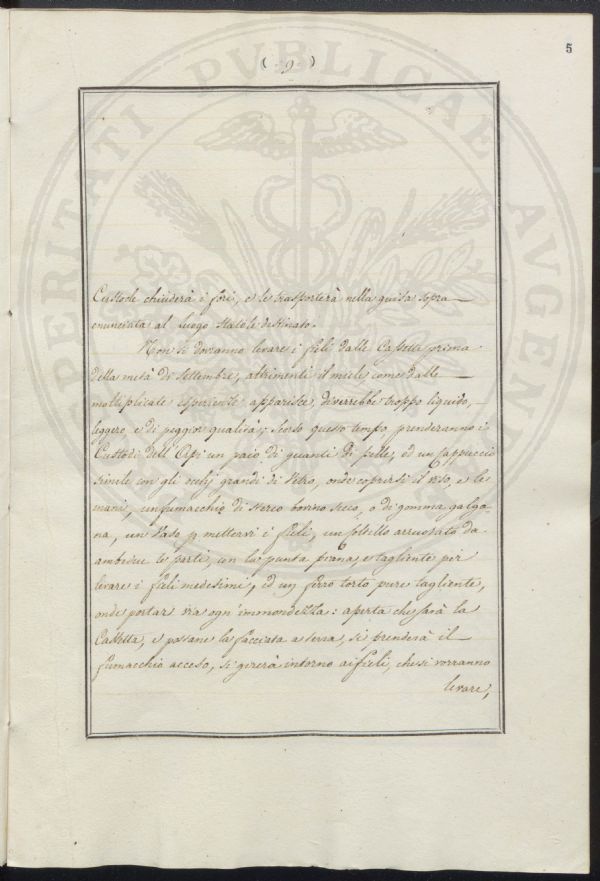 5
( 9 )
Custode chiuderà i fori, e le trasporterà nella guisa sopra
enunciata al luogo stabile destinato.
Non si dovranno levare i fieli dalle Cassette prima
della metà di Settembre, altrimenti il miele come dalle
moltiplicate esperienze apparisce, diverrebbe troppo liquido,
leggero e di peggior qualità; Verso questo tempo prenderanno i
Custodi dell'Api un paio di guanti di pelle, ed un cappuccio
simile con gli occhj grandi di Vetro, onde coprirsi il viso, e le
mani, un fumacchio di sterco bovino secco, o di gomma galga
na, un Vaso p mettervi i fieli, un coltello arruotato da
ambedue le parti con la punta piana, e tagliente per
levare i fieli medesimi, ed un ferro torto pure tagliente,
onde portar via ogn'immondezza: aperta che sarà la
Cassetta, e posane la facciata a terra, si prenderà il
fumacchio acceso, si girerà intorno ai fieli, che si vorranno
levare,
PERITATI PVBLICAE AVGENDAE